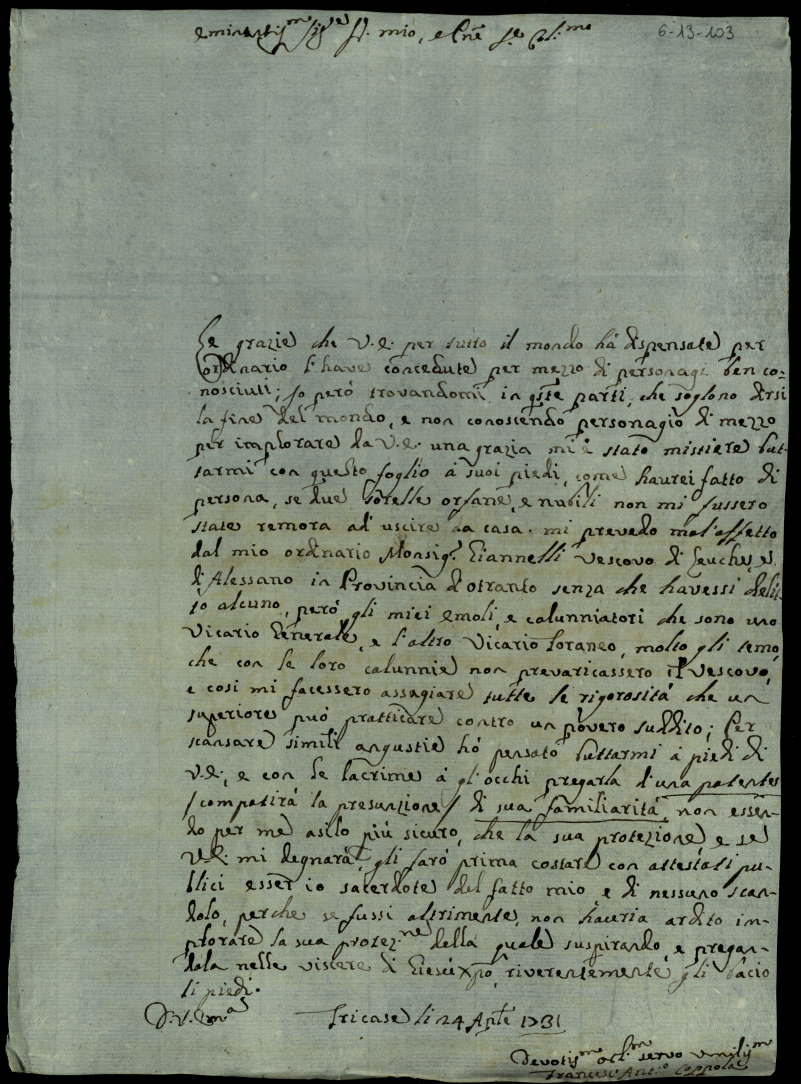 6-13-103
Eminentiss.mo Sig.re Sig. mio, e Pne
Le grazie che V.E. per tutto il mondo há dispensate per
ordinario l'have concedute per mezzo di personagi ben co=
nosciuti; Io peró trovandomi in q.ste parti, che soglono dirsi
la fine del mondo, e non conoscendo personagio di mezzo
per implorare da V.E. una grazia mi é stato mistiere but-
tarmi con questo foglio á suoi piedi, come haurei fatto di
persona, se due sorelle orfane, e nubili non mi fussero
state remora ad uscire da casa. mi prevedo mal'affetto
dal mio ordinario Monsig.r Giannelli Vescovo di Leuche, e
di Alessano in Provincia d'otranto senza che havessi delit-
to alcuno, peró gli miei emoli, e calunniatori che sono uno
Vicario Generale, e l'altro Vicario foraneo, molto gli temo,
che con le loro calunnie non prevaricassero il Vescovo,
e cosi mi facessero assagiare tutte le rigorositá che un
superiore puó pratticare contro un póvero suddito; Per
scansare simili angustie hó pensato buttarmi á piedi di
V.E., e con le lacrime á gl'occhi pregarla d'una patente
/compatirá la presunzione/ di sua familiaritá, non essen-
do per me asilo piú sicuro, che la sua protezione, e se
V.E. mi degnará, gli faró prima costare con attestati pu-
blici esser io sacerdote del fatto mio, e di nessuno scan-
dolo, perche se fussi altrimente, non haveria ardito im-
plorare la sua protez.ne della quale suspirando, e pregan-
dola nelle viscere di Giesú Xpó, riverentemente gli bacio
li piedi.
D. V. Em.a
Tricase li 24 Aple 1731
Devotis.mo obl.mo servo umiliss.mo
Francesc' Ant.o Coppola